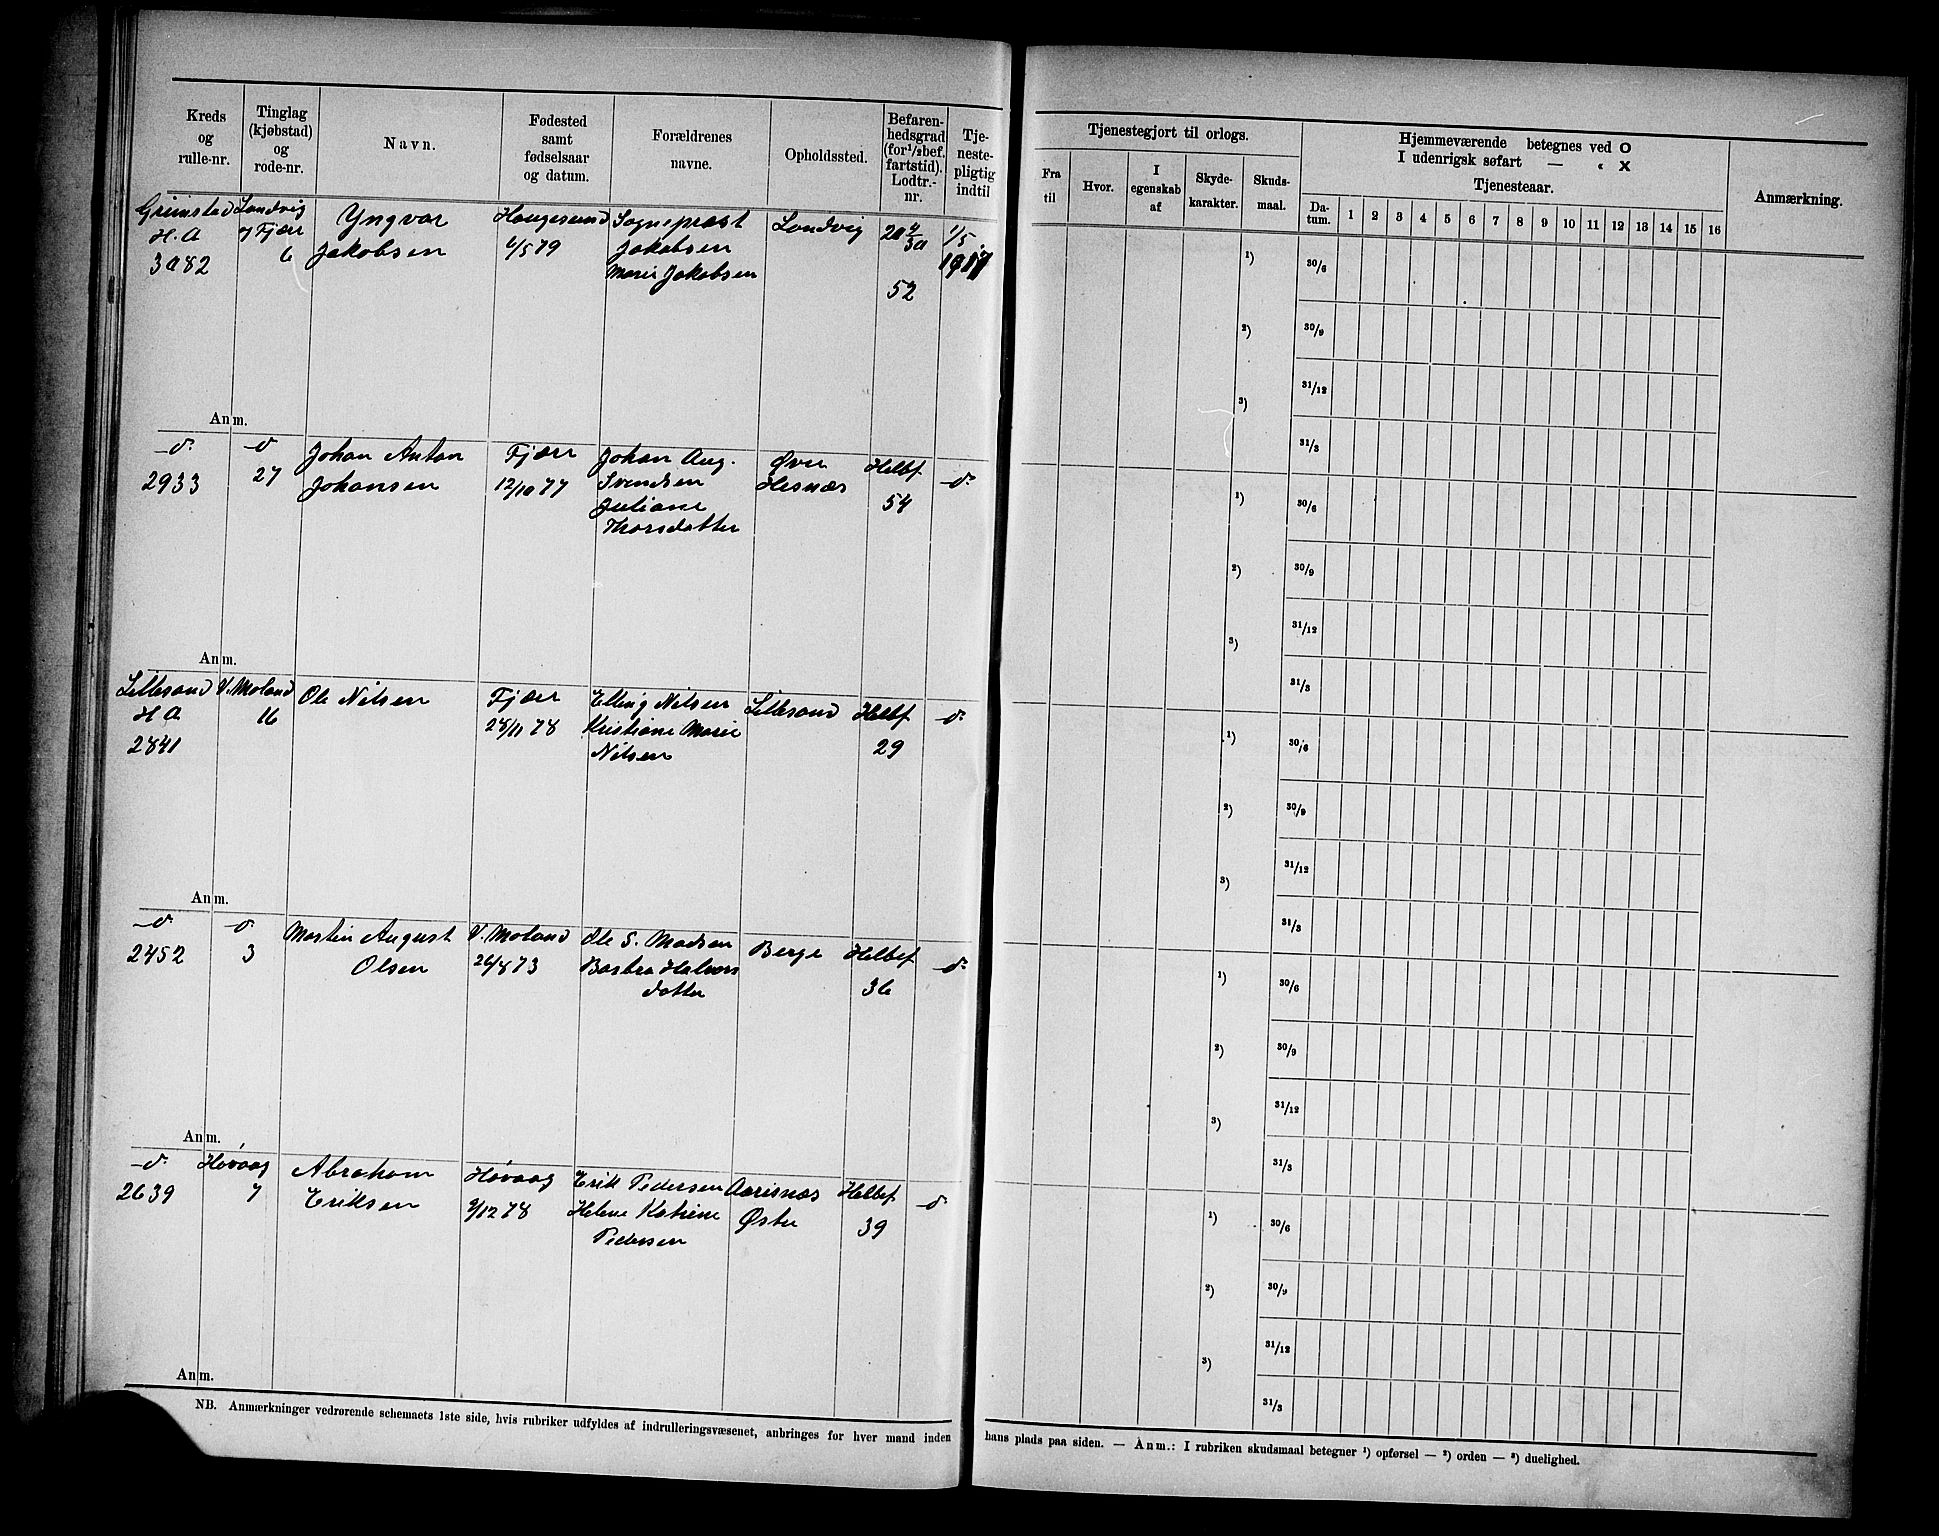 Kreds og rulle-nr.
Tinglag (kjøbstad) og rode-nr.
Navn.
Fødested samt fødselsaar og datum.
Forældrenes navne.
Opholdssted.
Befaren-hedsgrad (for 1/2 bef. fartstid). Lodtr.-nr.
Tje-neste-pligtig indtil
Tjenestegjort til orlogs.
Fra til
Hvor.
I egenskab af
Skyde-karakter.
Skuds-maal.
Hjemmeværende betegnes ved O
I udenrigsk søfart — « X
Tjenesteaar.
Da-tum. 1 2 3 4 5 6 7 8 9 10 11 12 13 14 15 16
Anmærkning.
Grimstad
H. A
3082
Landvig
og Fjære
6
Yngvar
Jakobsen
Haugesund
6/5 79
Sognepræst
Jakobsen
Marie Jakobsen
Landvig
52
1/5
1917
1) 2) 3)
30/6 30/9 31/12 31/3
Anm.
d.
2933
d
27
Johan Anton
Johansen
Fjære
12/10 77
Johan Aug.
Svendsen
Juliane
Thorsdatter
Øvre
Hesnæs
Helbf
54
d.
1) 2) 3)
30/6 30/9 31/12 31/3
Anm.
Lillesand
H A
2841
V. Moland
16
Ole Nilsen
Fjære
28/11 78
Elling Nilsen
Kristiane Marie
Nilsen
Lillesand
Helbf
29
d.
1) 2) 3)
30/6 30/9 31/12 31/3
Anm.
d.
2452
d.
3
Martin August
Olsen
V. Moland
26/8 73
Ole S. Madsen
Barbra Halvors
datter
Berge
Helbef
36
d.
1) 2) 3)
30/6 30/9 31/12 31/3
Anm.
d.
2639
Høvaag
7
Abraham
Eriksen
Høvaag
9/12 78
Erik Pedersen
Helene Katrine
Pedersen
Aarisnæs
Østre
Helbef
39
d.
1) 2) 3)
30/6 30/9 31/12 31/3
Anm.
NB. Anmærkninger vedrørende schemaets 1ste side, hvis rubriker udfyldes af indrulleringsvæsenet, anbringes for hver mand inden hans plads paa siden. — Anm.: I rubriken skudsmaal betegner 1) opførsel — 2) orden — 3) duelighed.